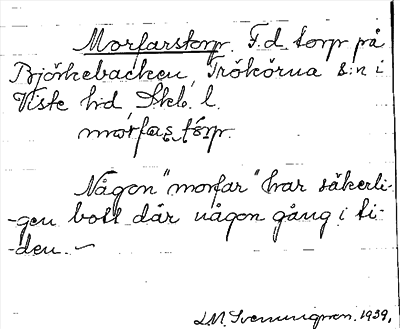 Morfarstorp. F.d. torp på
Björkebacken, Trökörna s:n i
Viste hd, Skb. l.
mórfas tórp.
Någon "morfar" har säkerli-
-gen bott där någon gång i ti-
-den. –
L.M. Svenungson. 1939.